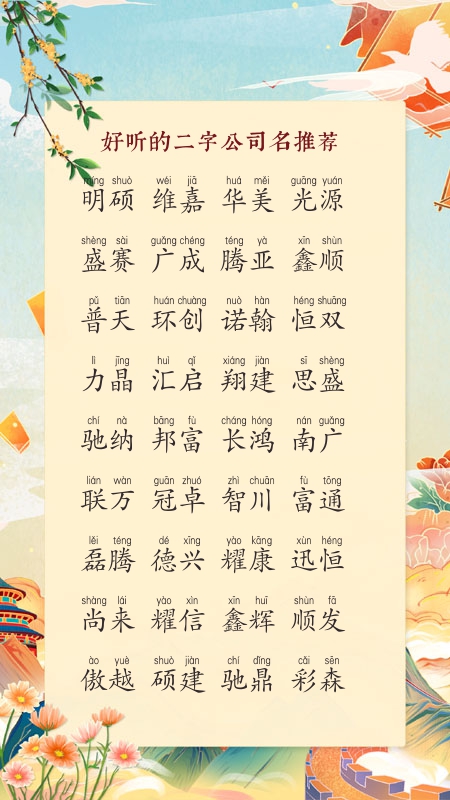 好听的二字公司名推荐
míng shuò wéi jiā huá měi guāng yuán
明硕 维嘉 华美 光源
shèng sài guǎng chéng téng yà xīn shùn
盛赛 广成 腾亚 鑫顺
pǔ tiān huán chuàng nuò hàn héng shuāng
普天 环创 诺翰 恒双
lì jīng huì qǐ xiáng jiàn sī shèng
力晶 汇启 翔建 思盛
chí nà bāng fù cháng hóng nán guǎng
驰纳 邦富 长鸿 南广
lián wàn guān zhuó zhì chuān fù tōng
联万 冠卓 智川 富通
lěi téng dé xìng yào kāng xùn héng
磊腾 德兴 耀康 迅恒
shàng lái yào xìn xīn huī shùn fā
尚来 耀信 鑫辉 顺发
ào yuè shuò jiàn chí dǐng cǎi sēn
傲越 硕建 驰鼎 彩森